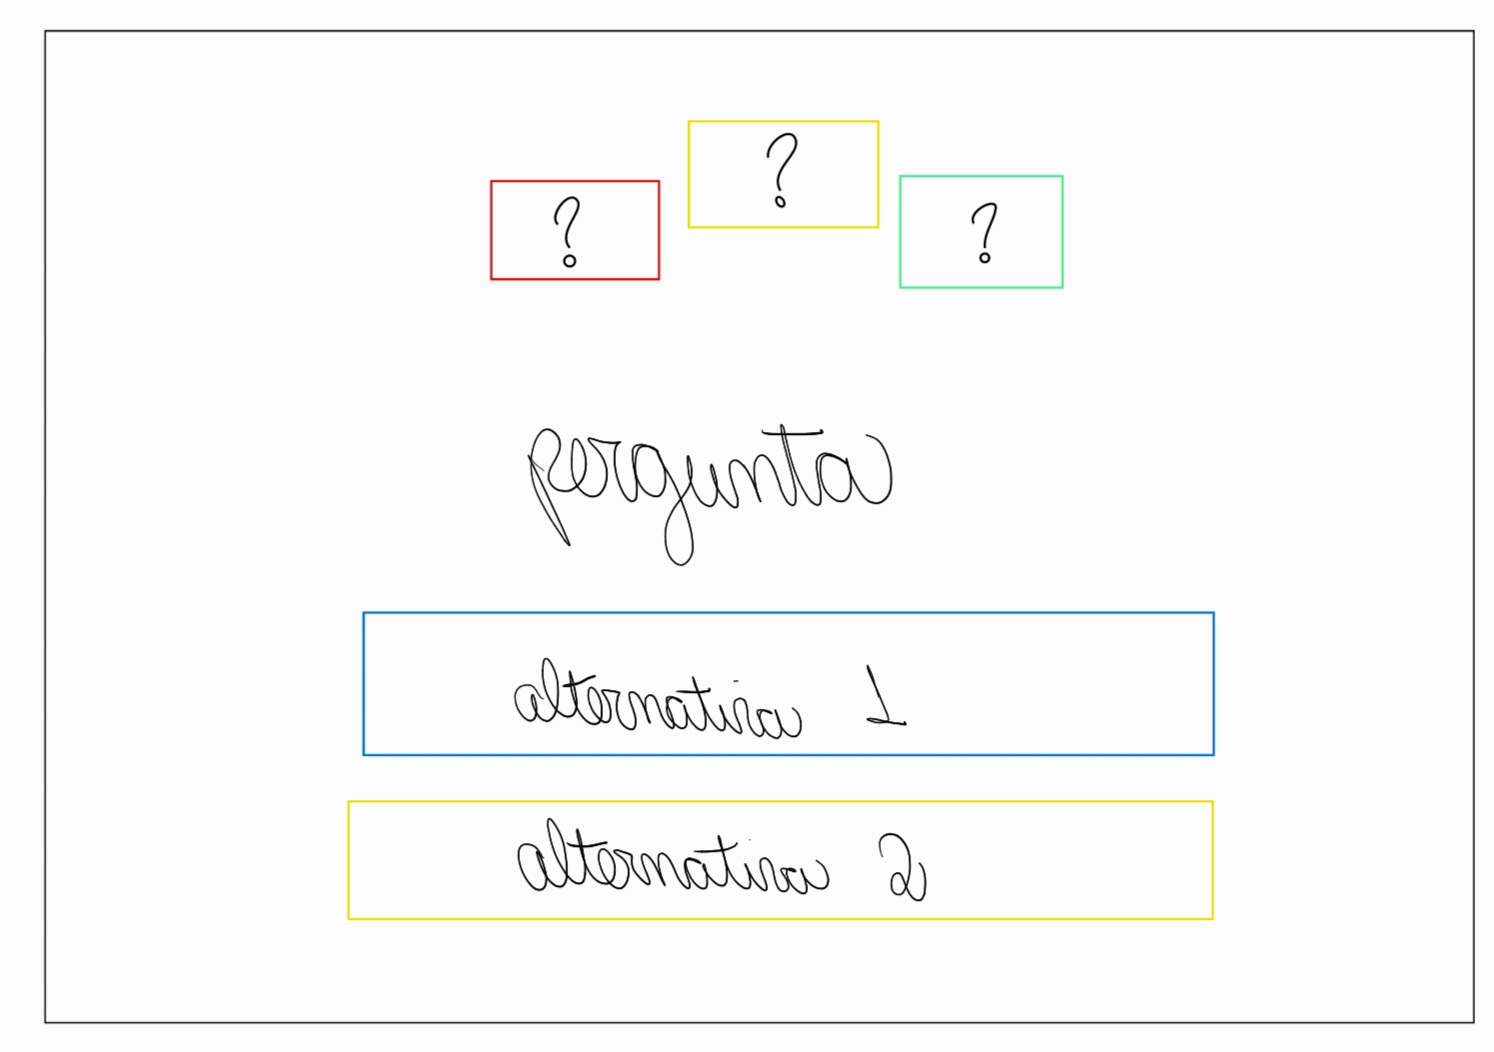 ? ? ?
pergunta
alternativa 1
alternativa 2